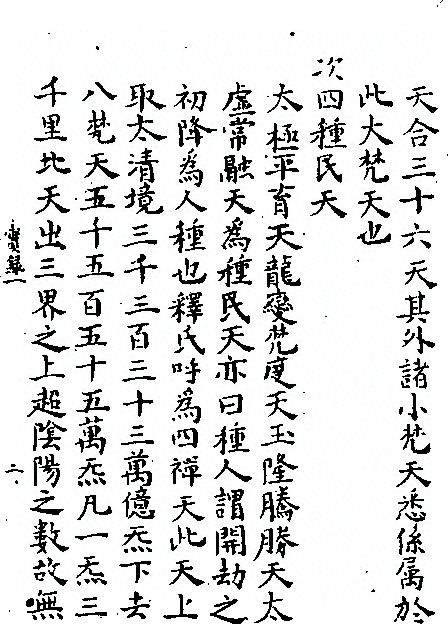 天合三十六天其外諸小梵天悉係属於
此大梵天也
次四種民天
太極平育天龍變梵度天玉隆騰勝天太
虛常融天為種民天亦曰種人謂開劫之
初降為人種也釋氏呼為四禪天此天上
取太清境三千三百三十三萬億炁下去
八梵天五千五百五十五萬炁凡一炁三
千里比天出三界之上超陰陽之數故無
實録一
二